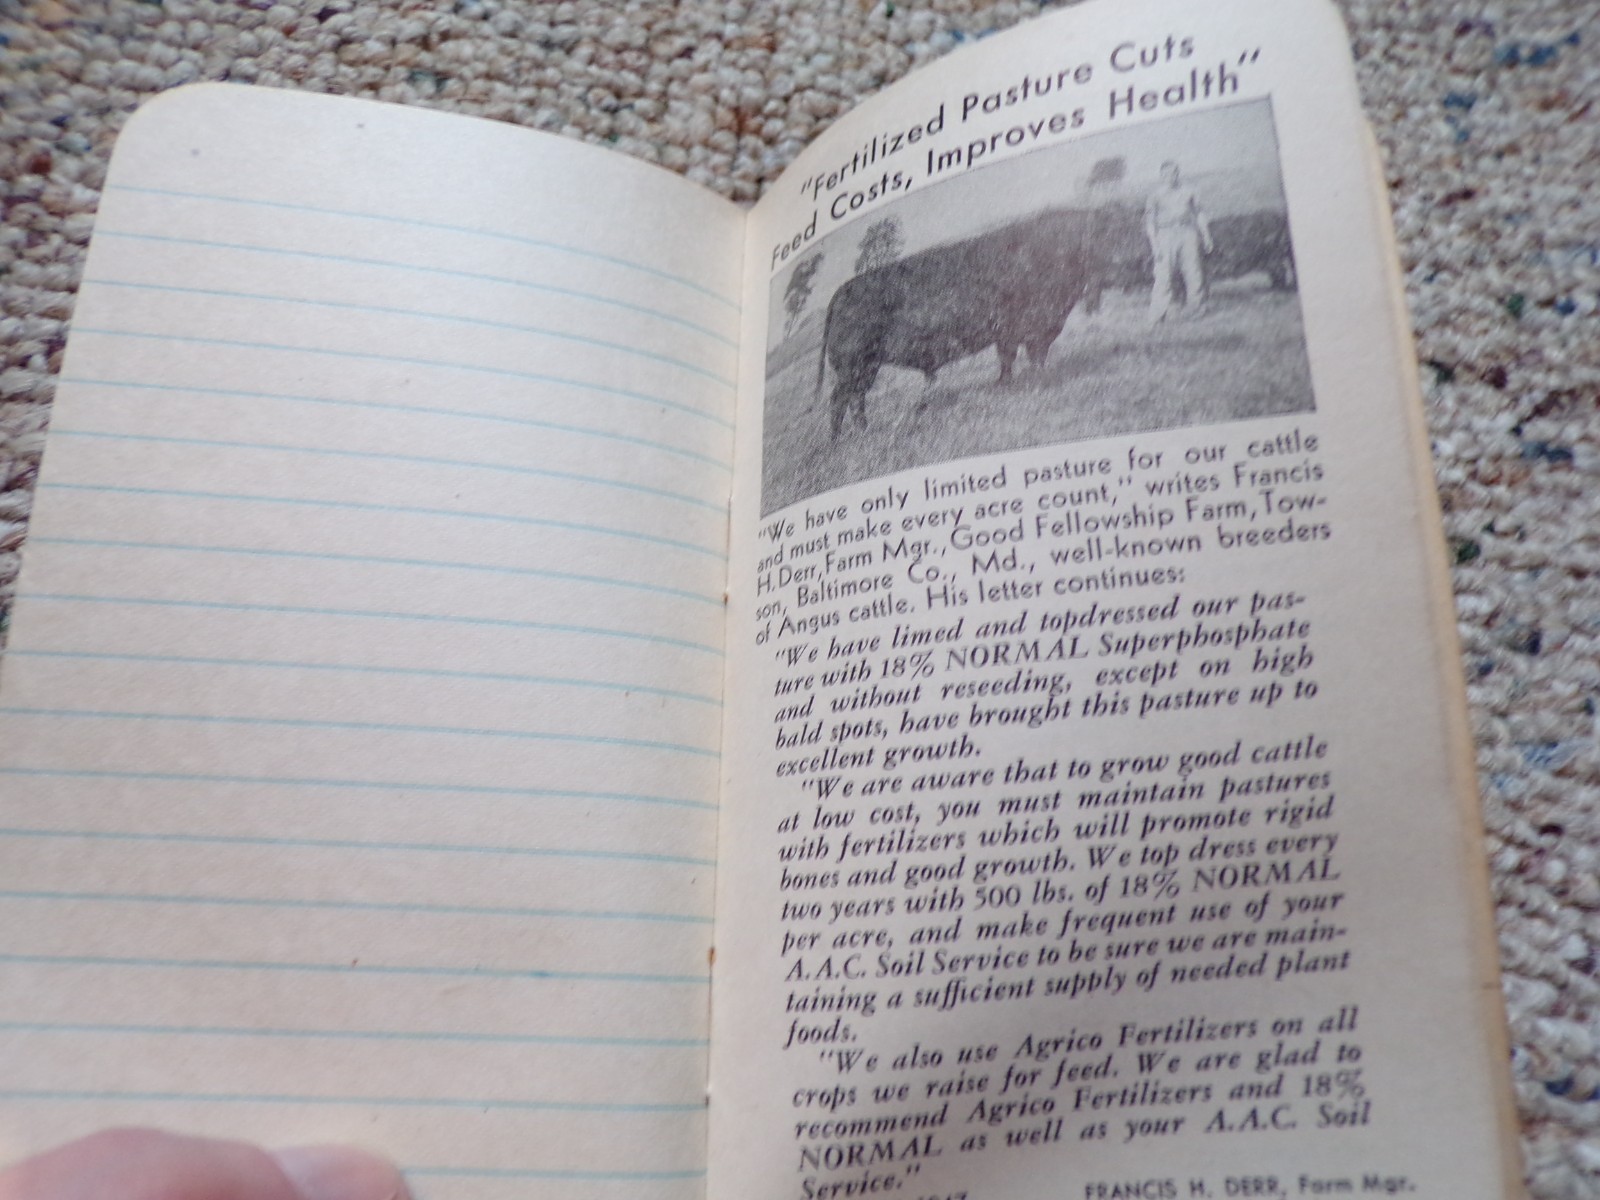 "Fertilized Pasture Cuts
Feed Costs, Improves Health"
"We have only limited pasture for our cattle
and must make every acre count," writes Francis
H. Derr, Farm Mgr., Good Fellowship Farm, Tow-
son, Baltimore Co., Md., well-known breeders
of Angus cattle. His letter continues:
"We have limed and topdressed our pas-
ture with 18% NORMAL Superphosphate
and without reseeding, except on high
bald spots, have brought this pasture up to
excellent growth.
"We are aware that to grow good cattle
at low cost, you must maintain pastures
with fertilizers which will promote rigid
bones and good growth. We top dress every
two years with 500 lbs. of 18% NORMAL
per acre, and make frequent use of your
A.A.C. Soil Service to be sure we are main-
taining a sufficient supply of needed plant
foods.
"We also use Agrico Fertilizers on all
crops we raise for feed. We are glad to
recommend Agrico Fertilizers and 18%
NORMAL as well as your A.A.C. Soil
Service."
FRANCIS H. DERR, Farm Mgr.